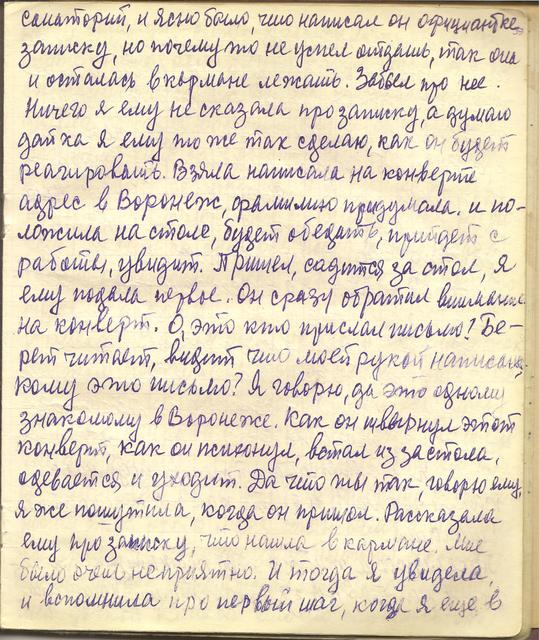 санаторий, и ясно было, что написал он официантке
записку, но почему то не успел отдать, так она
и осталась в кармане лежать. Забыл про нее.
Ничего я ему не сказала про записку, а думаю
дай ка я ему то же так сделаю, как он будет
реагировать. Взяла написала на конверте
адрес в Воронеж, фамилию придумала. и по-
ложила на столе, будет обедать, прийдет с
работы, увидит. Пришел, садится за стол, я
ему подала первое. Он сразу обратил внимание
на конверт. О, это кто прислал письмо? Бе-
рет читает, видит что моей рукой написано,
кому это письмо? Я говорю, да это одному
знакомому в Воронеже. Как он швырнул этот
конверт, как он психонул, встал из за стола,
одевается и уходит. Да что ты так, говорю ему,
я же пошутила, когда он пришол. Рассказала
ему про записку, что нашла в кармане. Мне
было очень неприятно. И тогда я увидела,
и вспомнила про первый шаг, когда я еще в